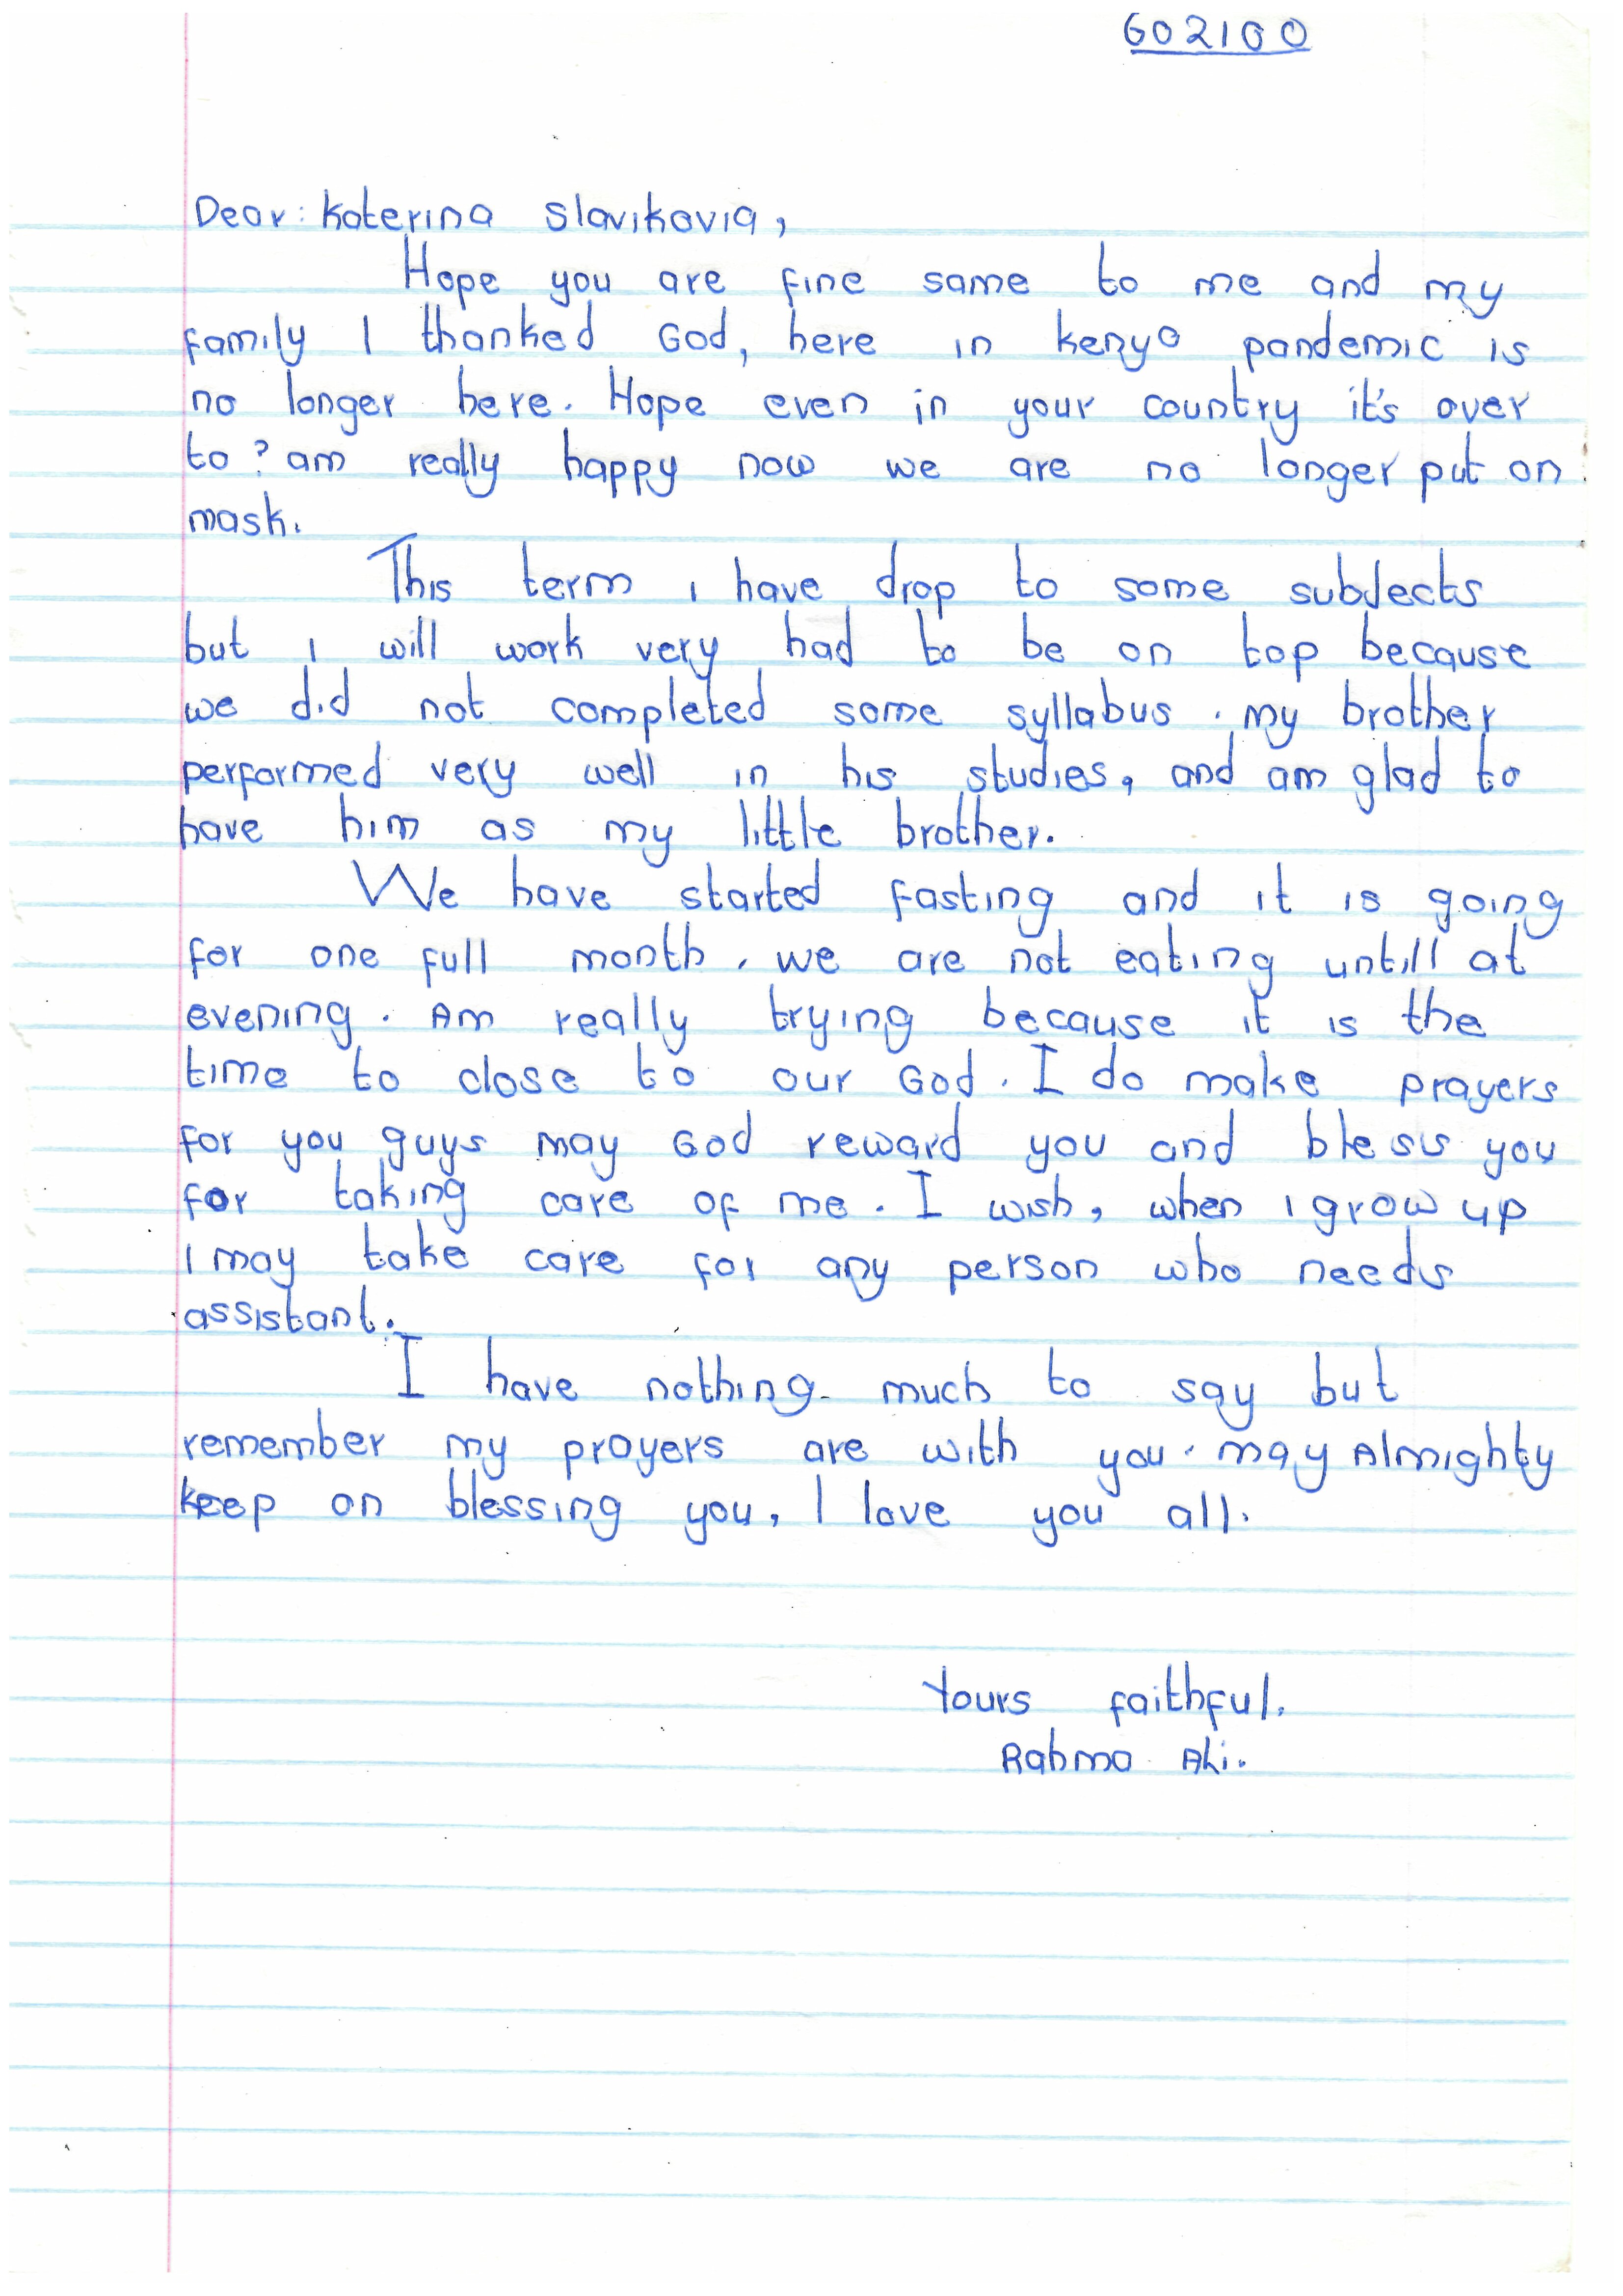 602100
Dear: Katerina Slavikovia,
Hope you are fine same to me and my
family I thanked God, here in kenya pandemic is
no longer here. Hope even in your country it's over
to? am really happy now we are no longer put on
mask.
This term i have drop to some subJects
but i will work very had to be on top because
we did not completed some syllabus. my brother
performed very well in his studies, and am glad to
have him as my little brother.
We have started fasting and it is going
for one full month. we are not eating untill at
evening. Am really trying because it is the
time to close to our God. I do make prayers
for you guys may God reward you and bless you
for taking care of me. I wish, when i grow up
I may take care for any person who needs
assistant.
I have nothing much to say but
remember my prayers are with you. may Almighty
keep on blessing you, I love you all.
Yours faithful.
Rahma Ali.